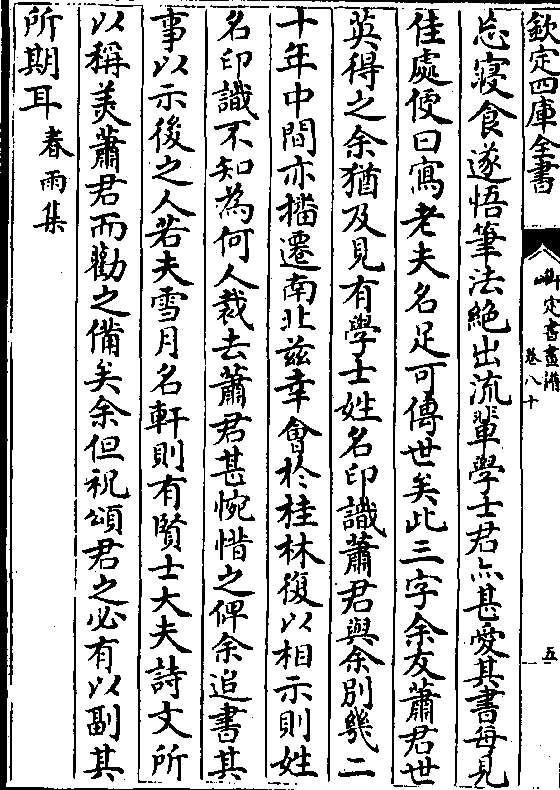 欽定四庫全書
御定書畫譜
卷八十
五
忘寢食遂悟筆法絶出流輩學士君亦甚愛其書每見
佳處便曰寫老夫名足可傳世矣此三字余友蕭君世
英得之余猶及見有學士姓名印識蕭君與余別幾二
十年中間亦播遷南北兹幸會於桂林復以相示則姓
名印識不知為何人裁去蕭君甚惋惜之俾余追書其
事以示後之人若夫雪月名軒則有賢士大夫詩文所
以稱美蕭君而勸之備矣余但祝頌君之必有以副其
所期耳春雨集